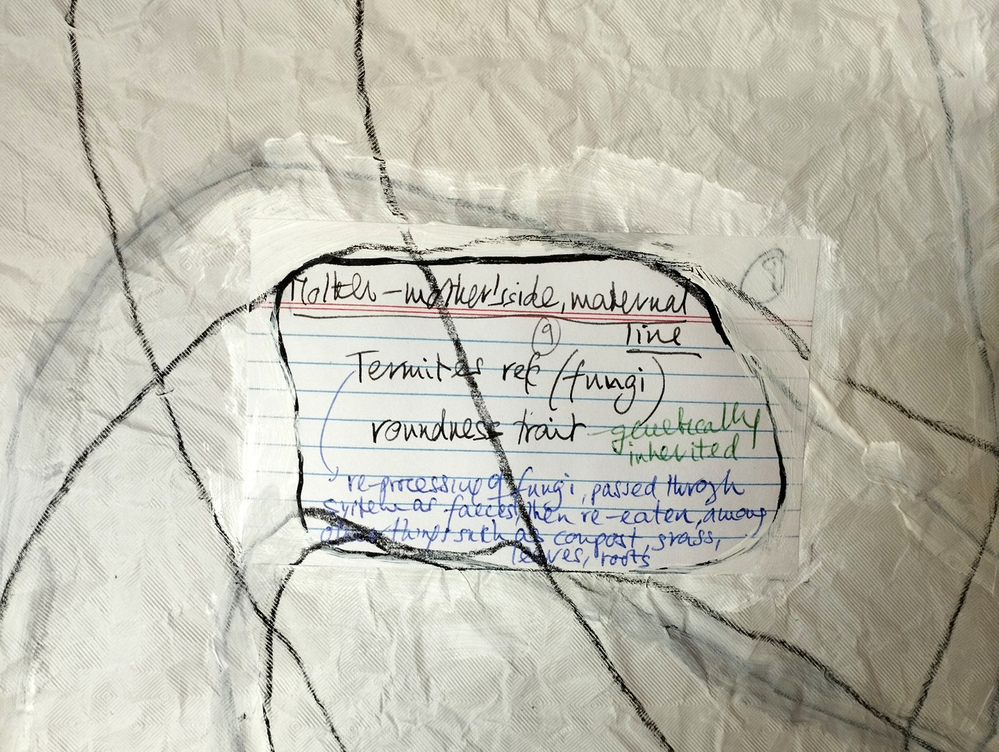 Mother – mother's side, maternal
line
9
9
Termites ref (fungi)
roundness trait – genetically
inherited
re-processing of fungi, passed through
system as faeces, then re-eaten, among
other things such as compost, grass,
leaves, roots